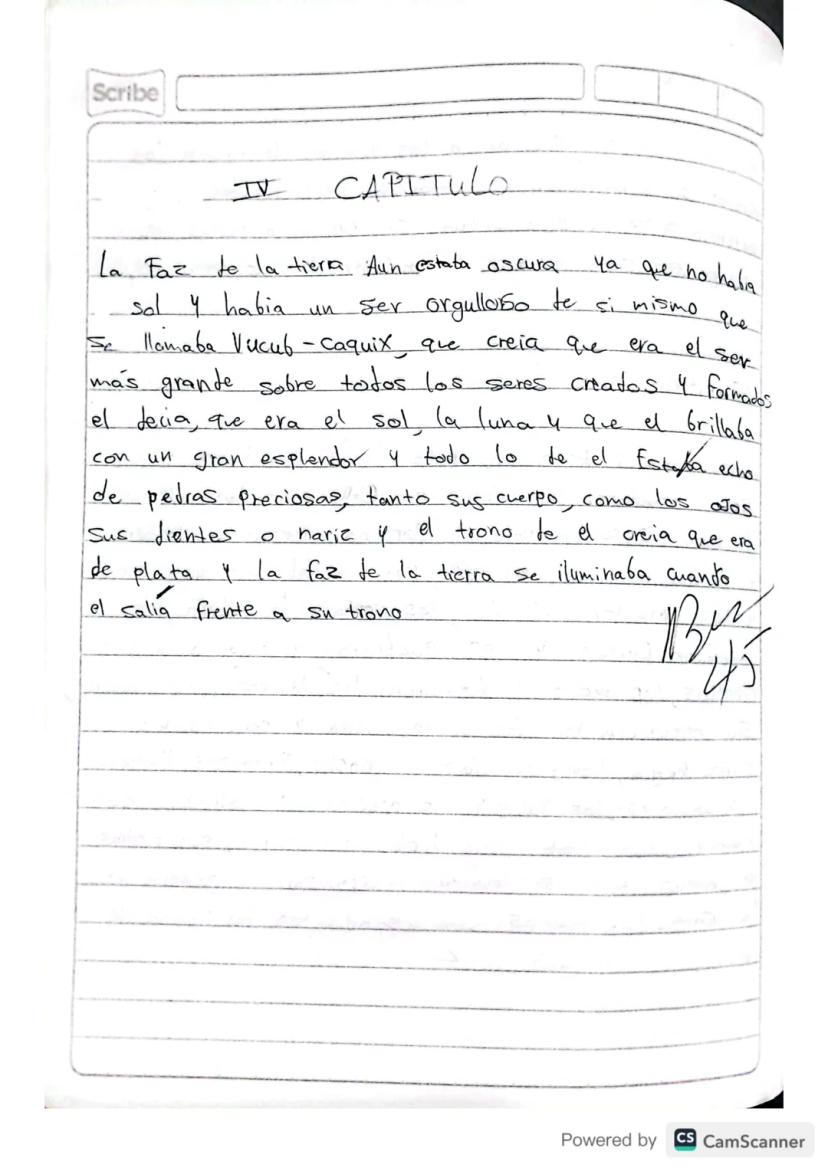 Scribe
IV CAPITULO
La Faz de la tierra Aun estaba oscura ya que no habia
sol y habia un ser orgulloso de si mismo que
se llamaba Vucub-caquix, que creia que era el ser
más grande sobre todos los seres creados y formados
el decia, que era el sol, la luna y que el brillaba
con un gran esplendor y todo lo de el Estaba echo
de pedras preciosas, tanto sus cuerpo, como los ojos
sus dientes o nariz y el trono de el creia que era
de plata y la faz de la tierra se iluminaba cuando
el salía frente a su trono
45
Powered by CS CamScanner